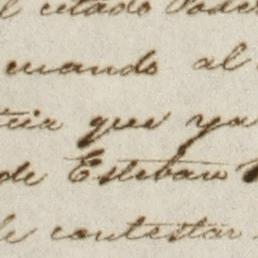 el citado Poder
cuando al
que ya
de Esteban
de contestar